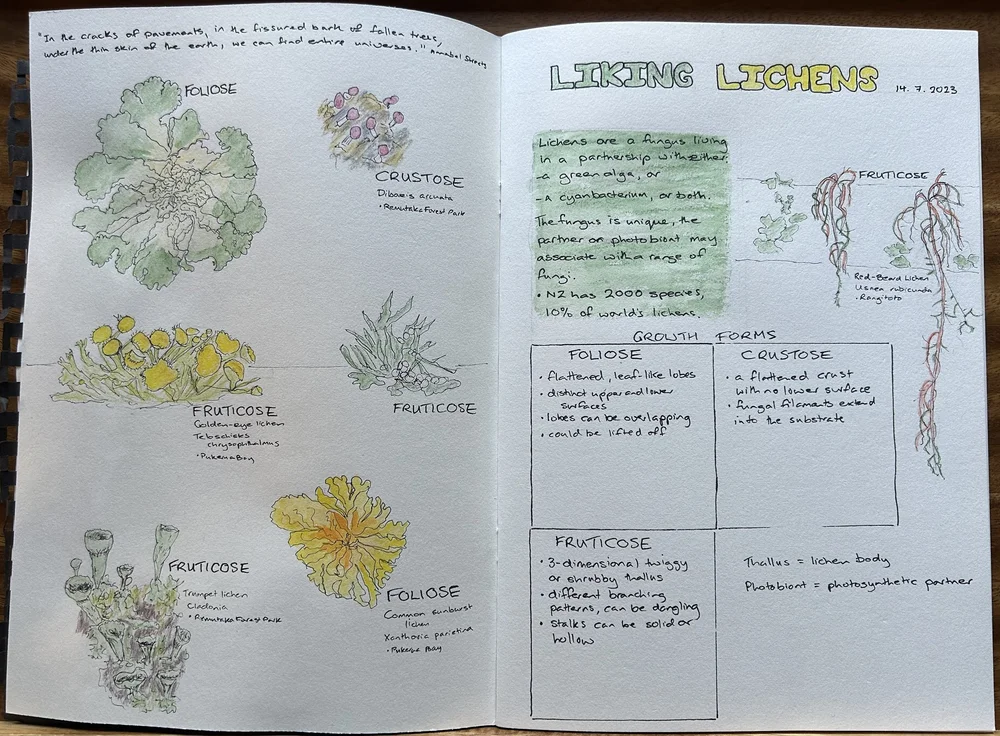 "In the cracks of pavements, in the fissured bark of fallen trees,
under the thin skin of the earth, we can find entire universes." Annabel Streets
FOLIOSE
CRUSTOSE
Dibaeis arcuata
• Remutaka Forest Park
FRUTICOSE
Golden-eye lichen
Teloschistes
chrysophthalmus
• Pukerua Bay
FRUTICOSE
FRUTICOSE
Trumpet lichen
Cladonia
• Remutaka Forest Park
FOLIOSE
Common sunburst
lichen
Xanthoria parietina
• Pukerua Bay
LIKING LICHENS
14. 7. 2023
Lichens are a fungus living
in a partnership with either:
- a green alga, or
- A cyanobacterium, or both.
The fungus is unique, the
partner or photobiont may
associate with a range of
fungi.
• NZ has 2000 species,
10% of world's lichens.
FRUTICOSE
Red-Beard Lichen
Usnea rubicunda
• Rangitoto
GROWTH FORMS
FOLIOSE
• flattened, leaf-like lobes
• distinct upper and lower
surfaces
• lobes can be overlapping
• could be lifted off
CRUSTOSE
• a flattened crust
with no lower surface
• fungal filaments extend
into the substrate
FRUTICOSE
• 3-dimensional twiggy
or shrubby thallus
• different branching
patterns, can be dangling
• stalks can be solid or
hollow
Thallus = lichen body
Photobiont = photosynthetic partner